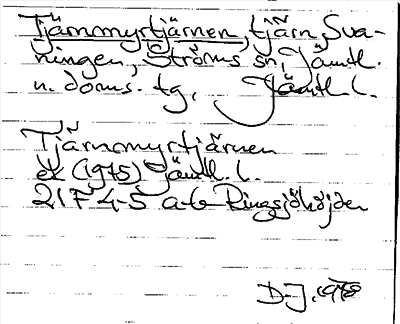 Tjärnmyrtjärnen, tjärn, Sva-
ningen, Ströms sn, Jämtl.
n. doms. tg, Jämtl l.
Tjärnmyrtjärnen
ek (1975) Jämtl. l.
21F 4-5 a-b Ringsjöhöjden
D-J. 1978